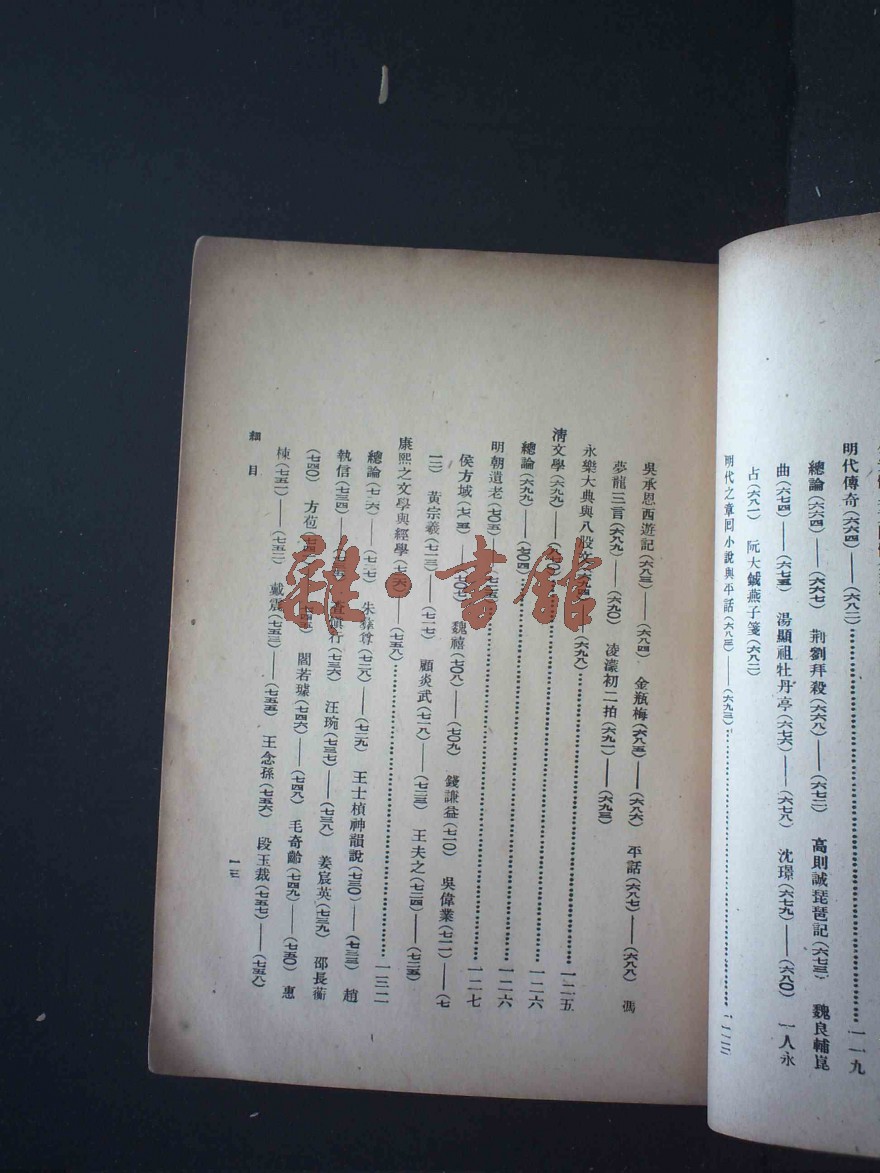 明代傳奇(六六四)——(六八二)……一一九
總論(六六四)——(六六七) 荆劉拜殺(六六八)——(六七二) 高則誠琵琶記(六七三) 魏良輔崑
曲(六七四)——(六七五) 湯顯祖牡丹亭(六七六)——(六七八) 沈璟(六七九)——(六八〇) 一人永
占(六八一) 阮大鋮燕子箋(六八二)
明代之章回小說與平話(六八三)——(六九三)……一二二
吳承恩西遊記(六八三)——(六八四) 金瓶梅(六八五)——(六八六) 平話(六八七)——(六八八) 馮
夢龍三言(六八九)——(六九〇) 凌濛初二拍(六九一)——(六九三)
永樂大典與八股文(六九四)——(六九八)……一二五
清文學(六九九)——
總論(六九九)——(七〇四)……一二六
明朝遺老(七〇五)……一二七
侯方域(七〇五)——(七〇七) 魏禧(七〇八)——(七〇九) 錢謙益(七一〇) 吳偉業(七一一)——(七
一二) 黃宗羲(七一三)——(七一七) 顧炎武(七一八)——(七二三) 王夫之(七二四)——(七二五)
康熙之文學與經學(七二六)——(七五八)……一三二
總論(七二六)——(七二七) 朱彝尊(七二八)——(七二九) 王士楨神韻說(七三〇)——(七三三) 趙
執信(七三四)—— 查慎行(七三六) 汪琬(七三七)——(七三八) 姜宸英(七三九) 邵長蘅
(七四〇) 方苞 閻若璩(七四六)——(七四八) 毛奇齡(七四九)——(七五〇) 惠
棟(七五一)——(七五二) 戴震(七五三)——(七五五) 王念孫(七五六) 段玉裁(七五七)——(七五八)
細目
一三
雜·書館